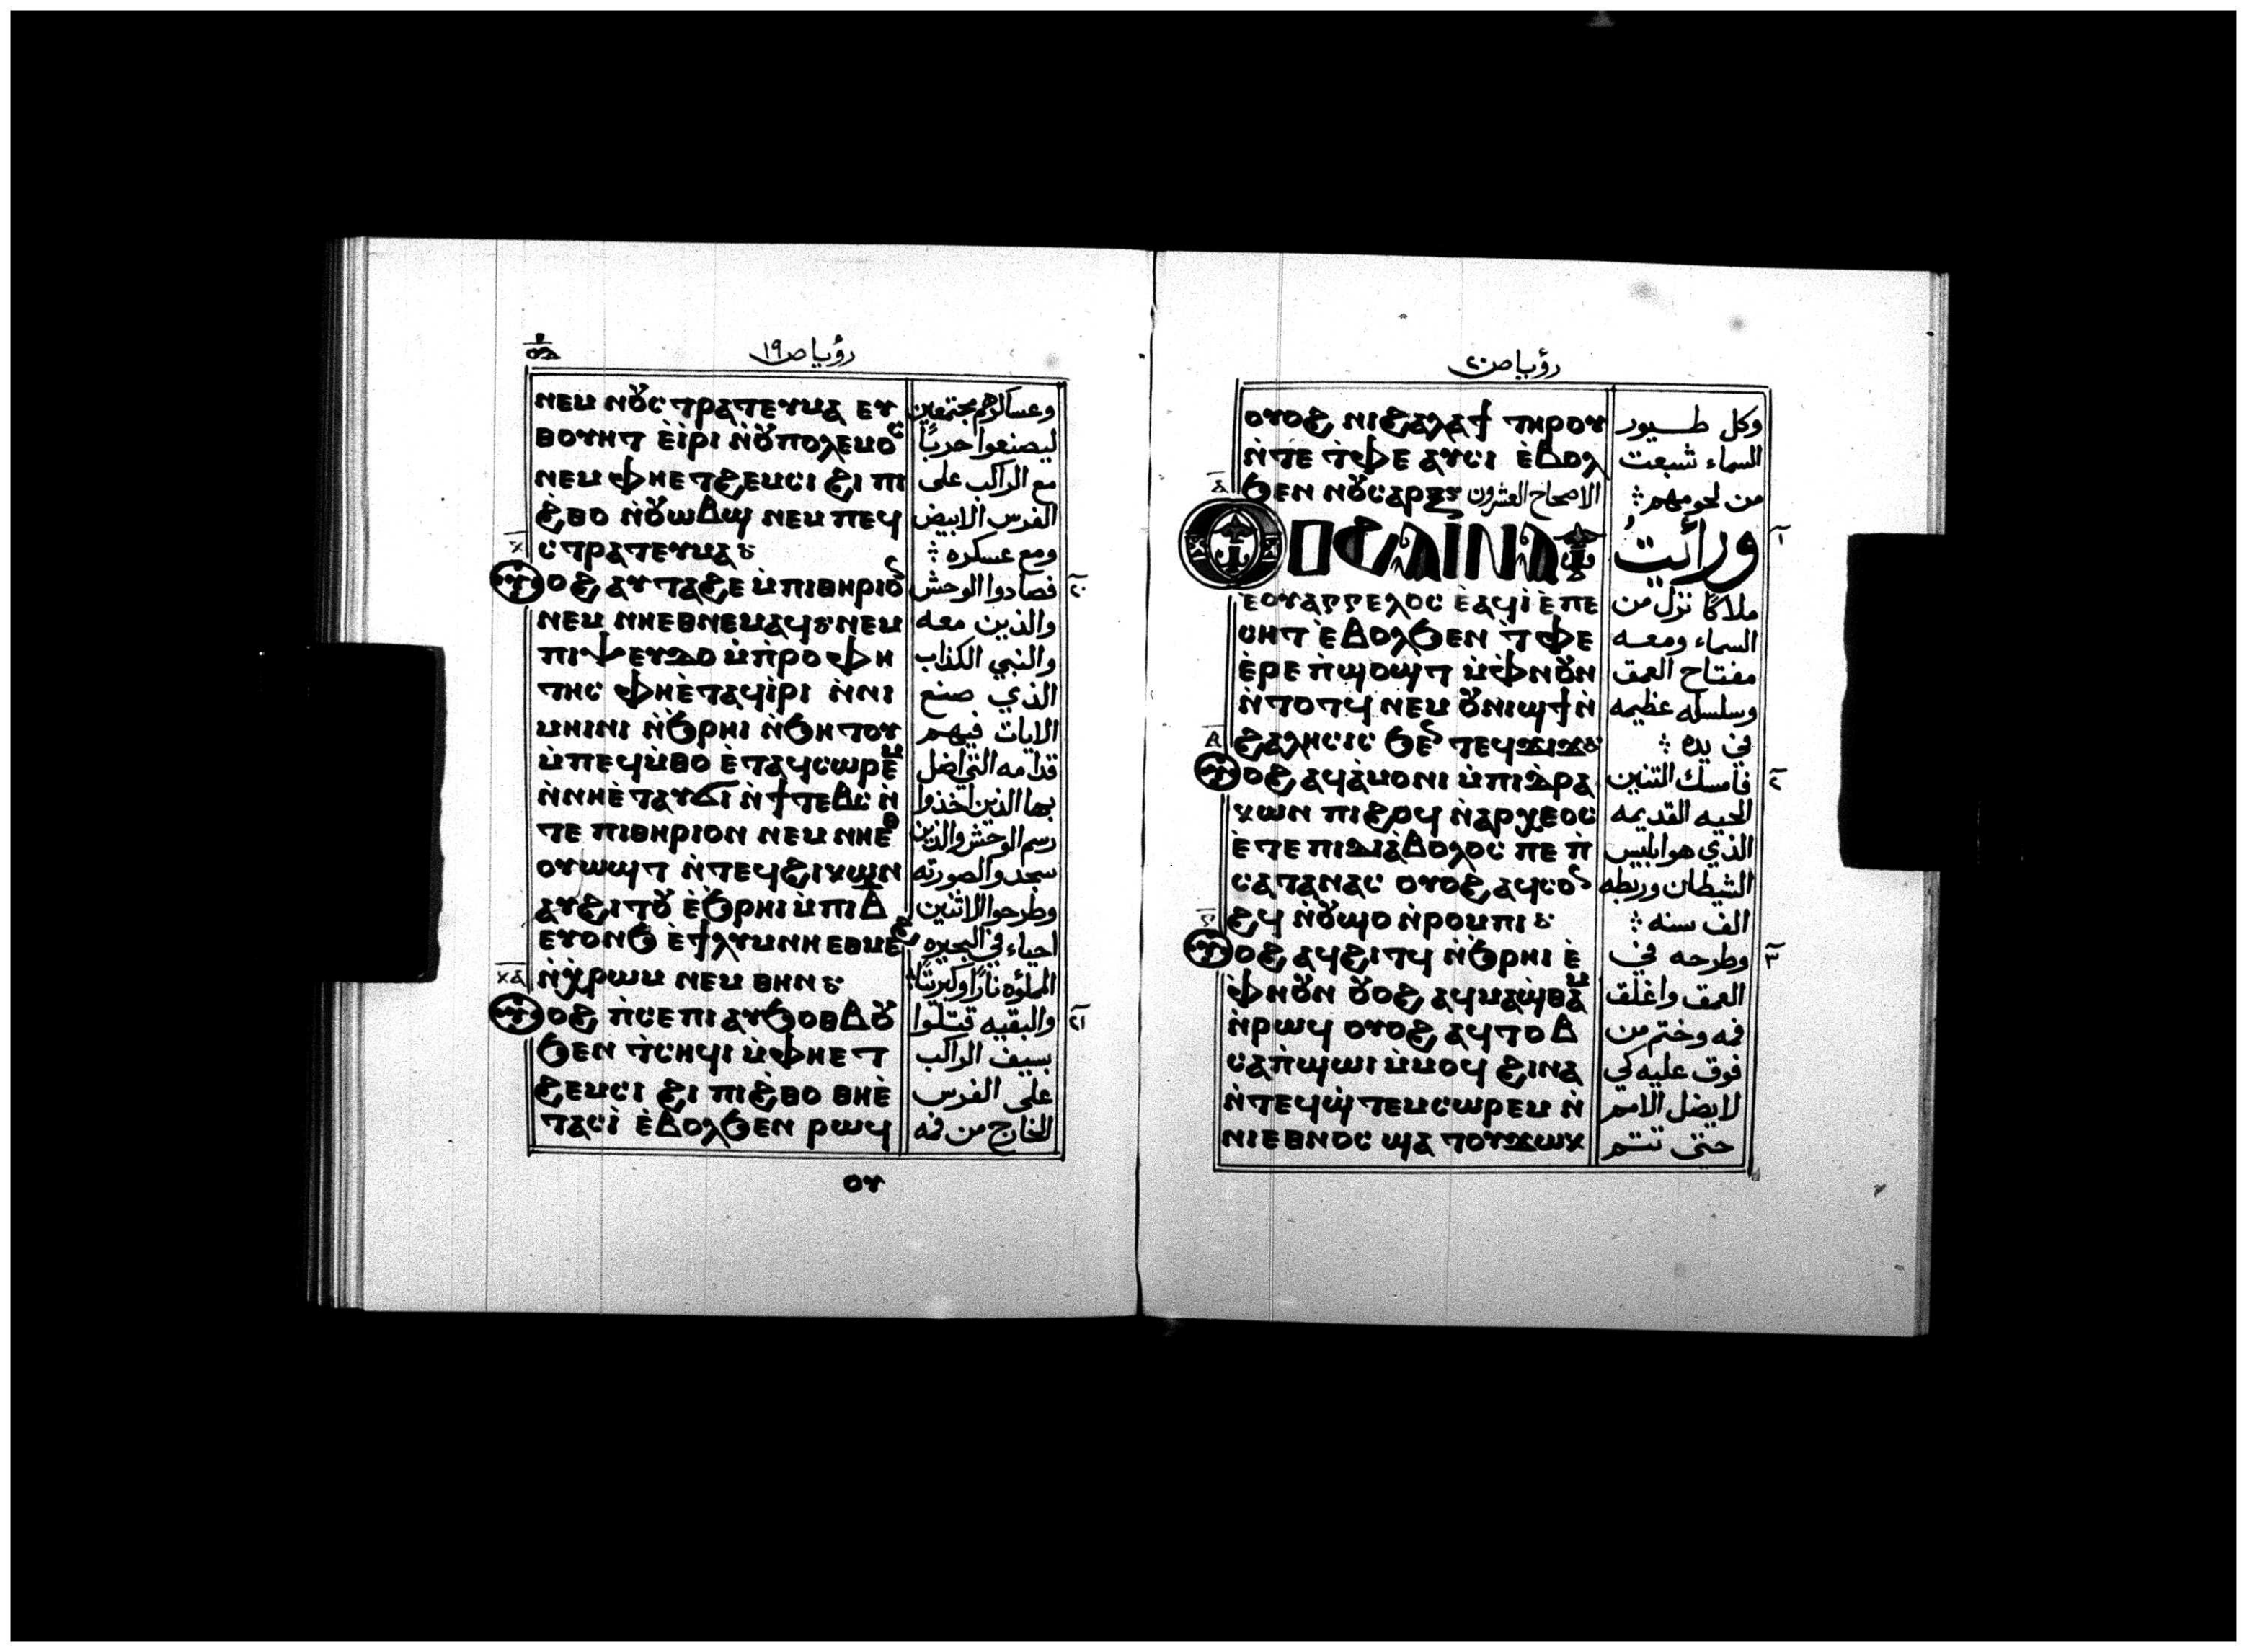 رؤيا ص ١٩
ⲛⲉⲙ ⲛⲟⲩ̀ⲥⲧⲣⲁⲧⲉⲩⲙⲁ ⲉⲩ
ⲑⲟⲩⲏⲧ ⲉ̀ⲓ̀ⲣⲓ ⲛ̀ⲟⲩⲡⲟⲗⲉⲙⲟⲥ
ⲛⲉⲙ ⲫⲏⲉⲧϩⲉⲙⲥⲓ ϩⲓ ⲡⲓ
ϩ̀ⲑⲟ ⲛ̀ⲟⲩⲱⲃϣ ⲛⲉⲙ ⲡⲉϥ
ⲥⲧⲣⲁⲧⲉⲩⲙⲁ
ⲟⲩⲟϩ ⲁⲩⲧⲁϩⲉ ⲙ̀ⲡⲓⲑⲏⲣⲓⲟⲛ
ⲛⲉⲙ ⲛⲏⲉⲑⲛⲉⲙⲁϥ ⲛⲉⲙ
ⲡⲓⲯⲉⲩⲇⲟ ⲙ̀ⲡ̀ⲣⲟⲫⲏ
ⲧⲏⲥ ⲫⲏⲉ̀ⲧⲁϥⲓ̀ⲣⲓ ⲛ̀ⲛⲓ
ⲙⲏⲓⲛⲓ ⲛ̀ϧ̀ⲣⲏⲓ ⲛ̀ϧⲏⲧⲟⲩ
ⲙ̀ⲡⲉϥⲙ̀ⲑⲟ ⲉ̀ⲧⲁϥⲥⲱⲣⲉⲙ
ⲛ̀ⲛⲏⲉ̀ⲧⲁⲩϭⲓ ⲛ̀ϯⲧⲉⲃⲥ ⲛ̀
ⲧⲉ ⲡⲓⲑⲏⲣⲓⲟⲛ ⲛⲉⲙ ⲛⲏⲉⲑ
ⲟⲩⲱϣⲧ ⲛ̀ⲧⲉϥϩⲓⲕⲱⲛ
ⲁⲩϩⲓⲧⲟⲩ ⲉ̀ϧ̀ⲣⲏⲓ ⲙ̀ⲡⲓⲃ̅
ⲉⲩⲟⲛϧ ⲉ̀ϯⲗⲩⲙⲛⲏ ⲉⲑⲙⲉϩ
ⲛ̀ⲭ̀ⲣⲱⲙ ⲛⲉⲙ ⲑⲏⲛ
ⲟⲩⲟϩ ⲡ̀ⲥⲉⲡⲓ ⲁⲩϧⲟⲑⲃⲟⲩ
ϧⲉⲛ ⲧ̀ⲥⲏϥⲓ ⲙ̀ⲫⲏⲉⲧ
ϩⲉⲙⲥⲓ ϩⲓ ⲡⲓϩ̀ⲑⲟ ⲑⲏⲉ̀
ⲧⲁⲥⲓ̀ ⲉ̀ⲃⲟⲗϧⲉⲛ ⲣⲱϥ
ⲟⲩ
وعساكرهم مجتمعين
ليصنعوا حرباً
مع الراكب على
الفرس الابيض
ومع عسكره
٢٠ فصادوا الوحش
والذين معه
والنبي الكذاب
الذي صنع
الايات فيهم
قدامه التي اضل
بها الذين اخذوا
رسم الوحش والذين
سجدوا لصورته
وطرحوا الاثنين
احياء في البحيره
المملؤه ناراً وكبريتاً
٢١ والبقيه قتلوا
بسيف الراكب
على الفرس
الخارج من فمه
رؤيا ص ٢٠
ⲟⲩⲟϩ ⲛⲓϩⲁⲗⲁϯ ⲧⲏⲣⲟⲩ
ⲛ̀ⲧⲉ ⲧ̀ⲫⲉ ⲁⲩⲥⲓ ⲉ̀ⲃⲟⲗ
ϧⲉⲛ ⲛⲟⲩⲥⲁⲣⲝ الاصحاح العشرون
ⲟⲩⲟϩ ⲁⲓⲛⲁⲩ
ⲉⲟⲩⲁⲅⲅⲉⲗⲟⲥ ⲉ̀ⲁϥⲓ̀ ⲉ̀ⲡⲉ
ⲥⲏⲧ ⲉ̀ⲃⲟⲗϧⲉⲛ ⲧ̀ⲫⲉ
ⲉ̀ⲣⲉ ⲡ̀ϣⲟϣⲧ ⲙ̀ⲫ̀ⲛⲟⲩⲛ
ⲛ̀ⲧⲟⲧϥ ⲛⲉⲙ ⲟⲩⲛⲓϣϯ ⲛ̀
ϩⲁⲗⲏⲥⲓⲥ ϧⲉⲛ ⲧⲉϥϫⲓϫ
ⲟⲩⲟϩ ⲁϥⲁ̀ⲙⲟⲛⲓ ⲙ̀ⲡⲓⲇ̀ⲣⲁ
ⲕⲱⲛ ⲡⲓϩⲟϥ ⲛ̀ⲁⲣⲭⲉⲟⲥ
ⲉ̀ⲧⲉ ⲡⲓⲇⲓⲁ̀ⲃⲟⲗⲟⲥ ⲡⲉ ⲡ̀
ⲥⲁⲧⲁⲛⲁⲥ ⲟⲩⲟϩ ⲁϥⲥⲟⲛ
ϩϥ ⲛ̀ⲟⲩϣⲟ ⲛ̀ⲣⲟⲙⲡⲓ
ⲟⲩⲟϩ ⲁϥϩⲓⲧϥ ⲛ̀ϧ̀ⲣⲏⲓ ⲉ̀
ⲫ̀ⲛⲟⲩⲛ ⲟⲩⲟϩ ⲁϥⲙⲁϣ̀ⲑⲁⲙ
ⲛ̀ⲣⲱϥ ⲟⲩⲟϩ ⲁϥⲧⲟⲃ
ⲥⲁⲡ̀ϣⲱⲓ ⲙ̀ⲙⲟϥ ϩⲓⲛⲁ
ⲛ̀ⲧⲉϥϣ̀ⲧⲉⲙⲥⲱⲣⲉⲙ ⲛ̀
ⲛⲓⲉⲑⲛⲟⲥ ϣⲁ ⲧⲟⲩϫⲱⲕ
وكل طيور
السماء شبعت
من لحومهم
١ ورأيتُ
ملاكاً نزل من
السماء ومعه
مفتاح العمق
وسلسله عظيمه
في يده
٢ فأمسك التنين
الحيه القديمه
الذي هو ابليس
الشيطان وربطه
الف سنه
٣ وطرحه في
العمق واغلق
فمه وختم من
فوق عليه كي
لا يضل الامم
حتى تتم